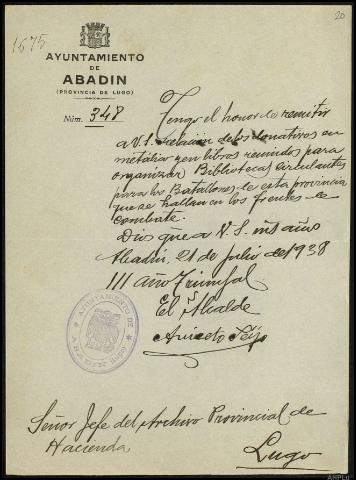 20
1675
AYUNTAMIENTO
DE
ABADIN
(PROVINCIA DE LUGO)
Núm. 348
Tengo el honor de remitir
a V.S. relación de los donativos en
metálico y en libros reunidos para
organizar Bibliotecas Circulantes
para los Batallones de esta provincia
que se hallan en los frentes de
combate.
Dios gue a V. S. ms años
Abadín, 21 de julio de 1938
III Año Triunfal
El Alcalde
Aniceto Seijo
AYUNTAMIENTO DE
ABADIN (Lugo)
Señor Jefe del Archivo Provincial de
Hacienda
Lugo
AHPLu